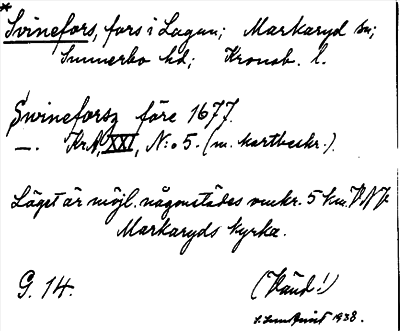 * Svinefors, fors i Lagan; Markaryd sn;
Sunnerbo hd; Kronob. l.
Swineforsz före 1677.
—. Kr.A. XXI, N:o 5. (m. kartbeskr.).
Läget är möjl. någonstädes omkr. 5 km. VNV.
Markaryds kyrka.
G. 14.
(Vänd!)
1938.